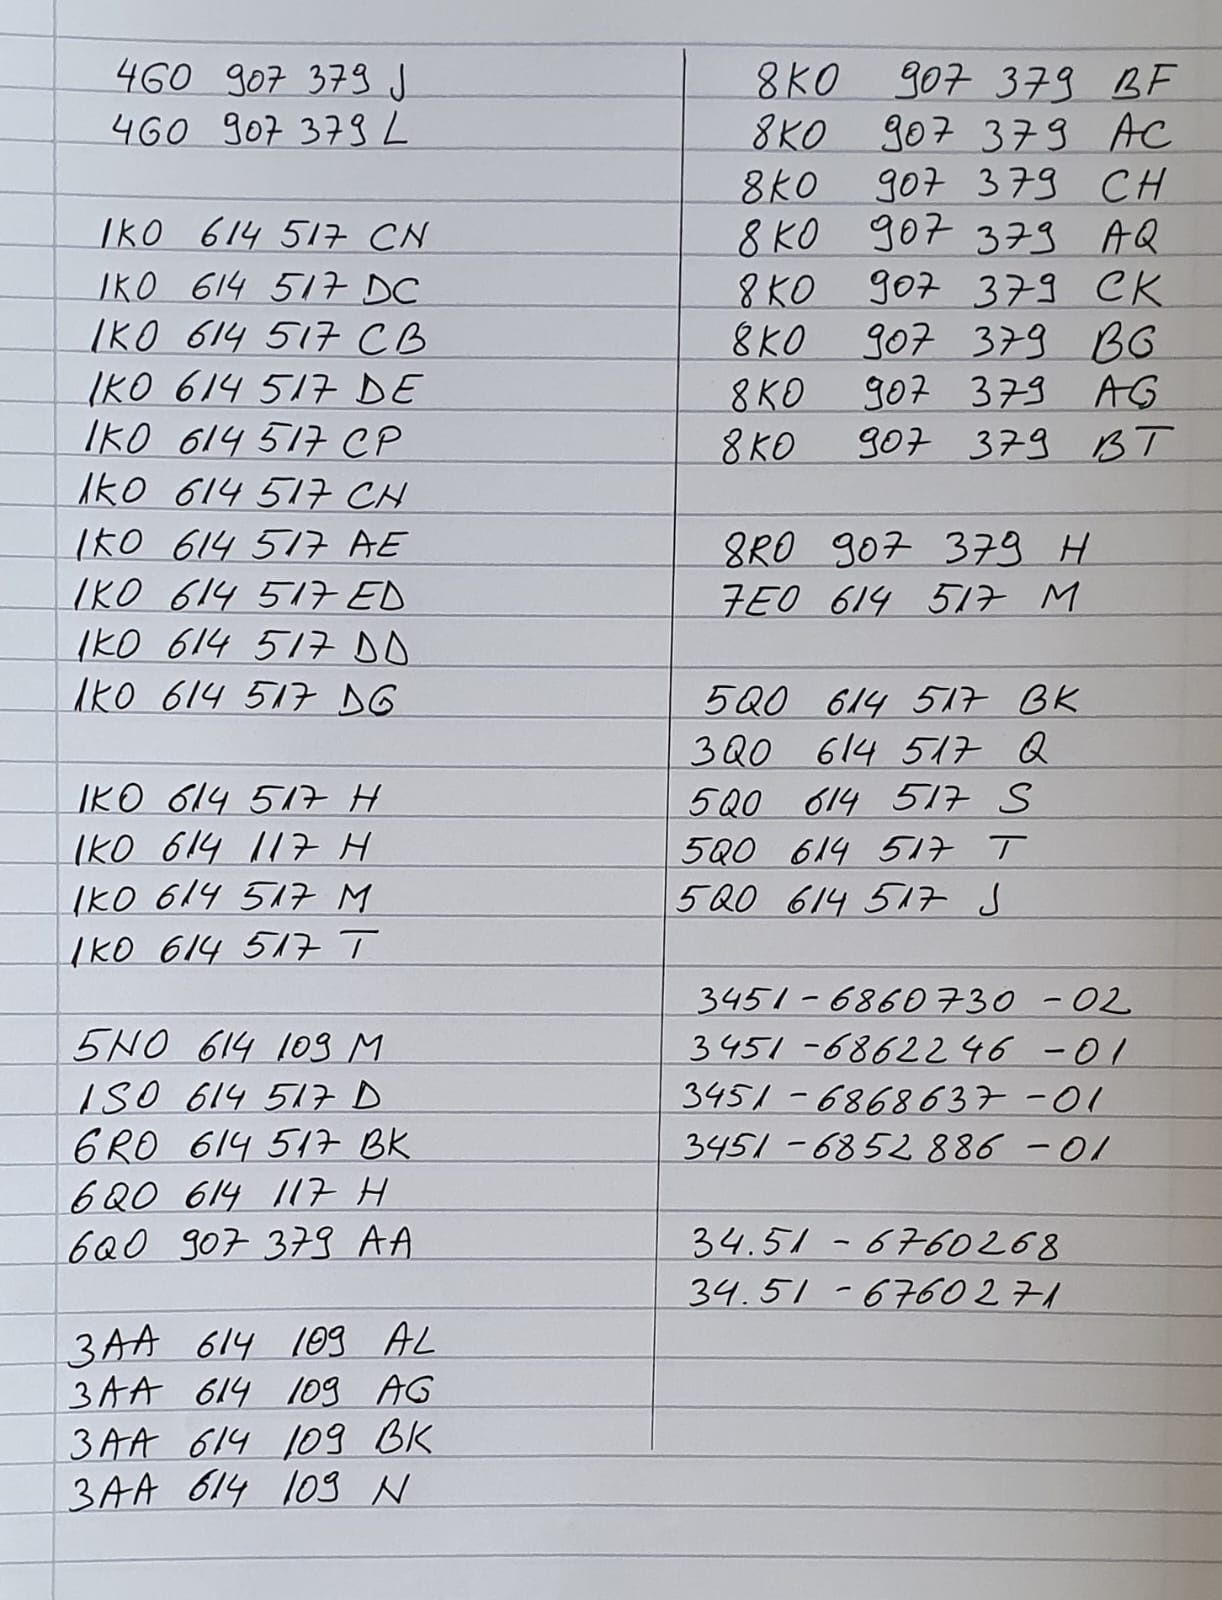 4G0 907 379 J
4G0 907 379 L
1K0 614 517 CN
1K0 614 517 DC
1K0 614 517 CB
1K0 614 517 DE
1K0 614 517 CP
1K0 614 517 CH
1K0 614 517 AE
1K0 614 517 ED
1K0 614 517 DD
1K0 614 517 DG
1K0 614 517 H
1K0 614 117 H
1K0 614 517 M
1K0 614 517 T
5N0 614 109 M
1S0 614 517 D
6R0 614 517 BK
6Q0 614 117 H
6Q0 907 379 AA
3AA 614 109 AL
3AA 614 109 AG
3AA 614 109 BK
3AA 614 109 N
8K0 907 379 BF
8K0 907 379 AC
8K0 907 379 CH
8K0 907 379 AQ
8K0 907 379 CK
8K0 907 379 BG
8K0 907 379 AG
8K0 907 379 BT
8R0 907 379 H
7E0 614 517 M
5Q0 614 517 BK
3Q0 614 517 Q
5Q0 614 517 S
5Q0 614 517 T
5Q0 614 517 J
3451-6860730-02
3451-6862246-01
3451-6868637-01
3451-6852886-01
34.51-6760268
34.51-6760271